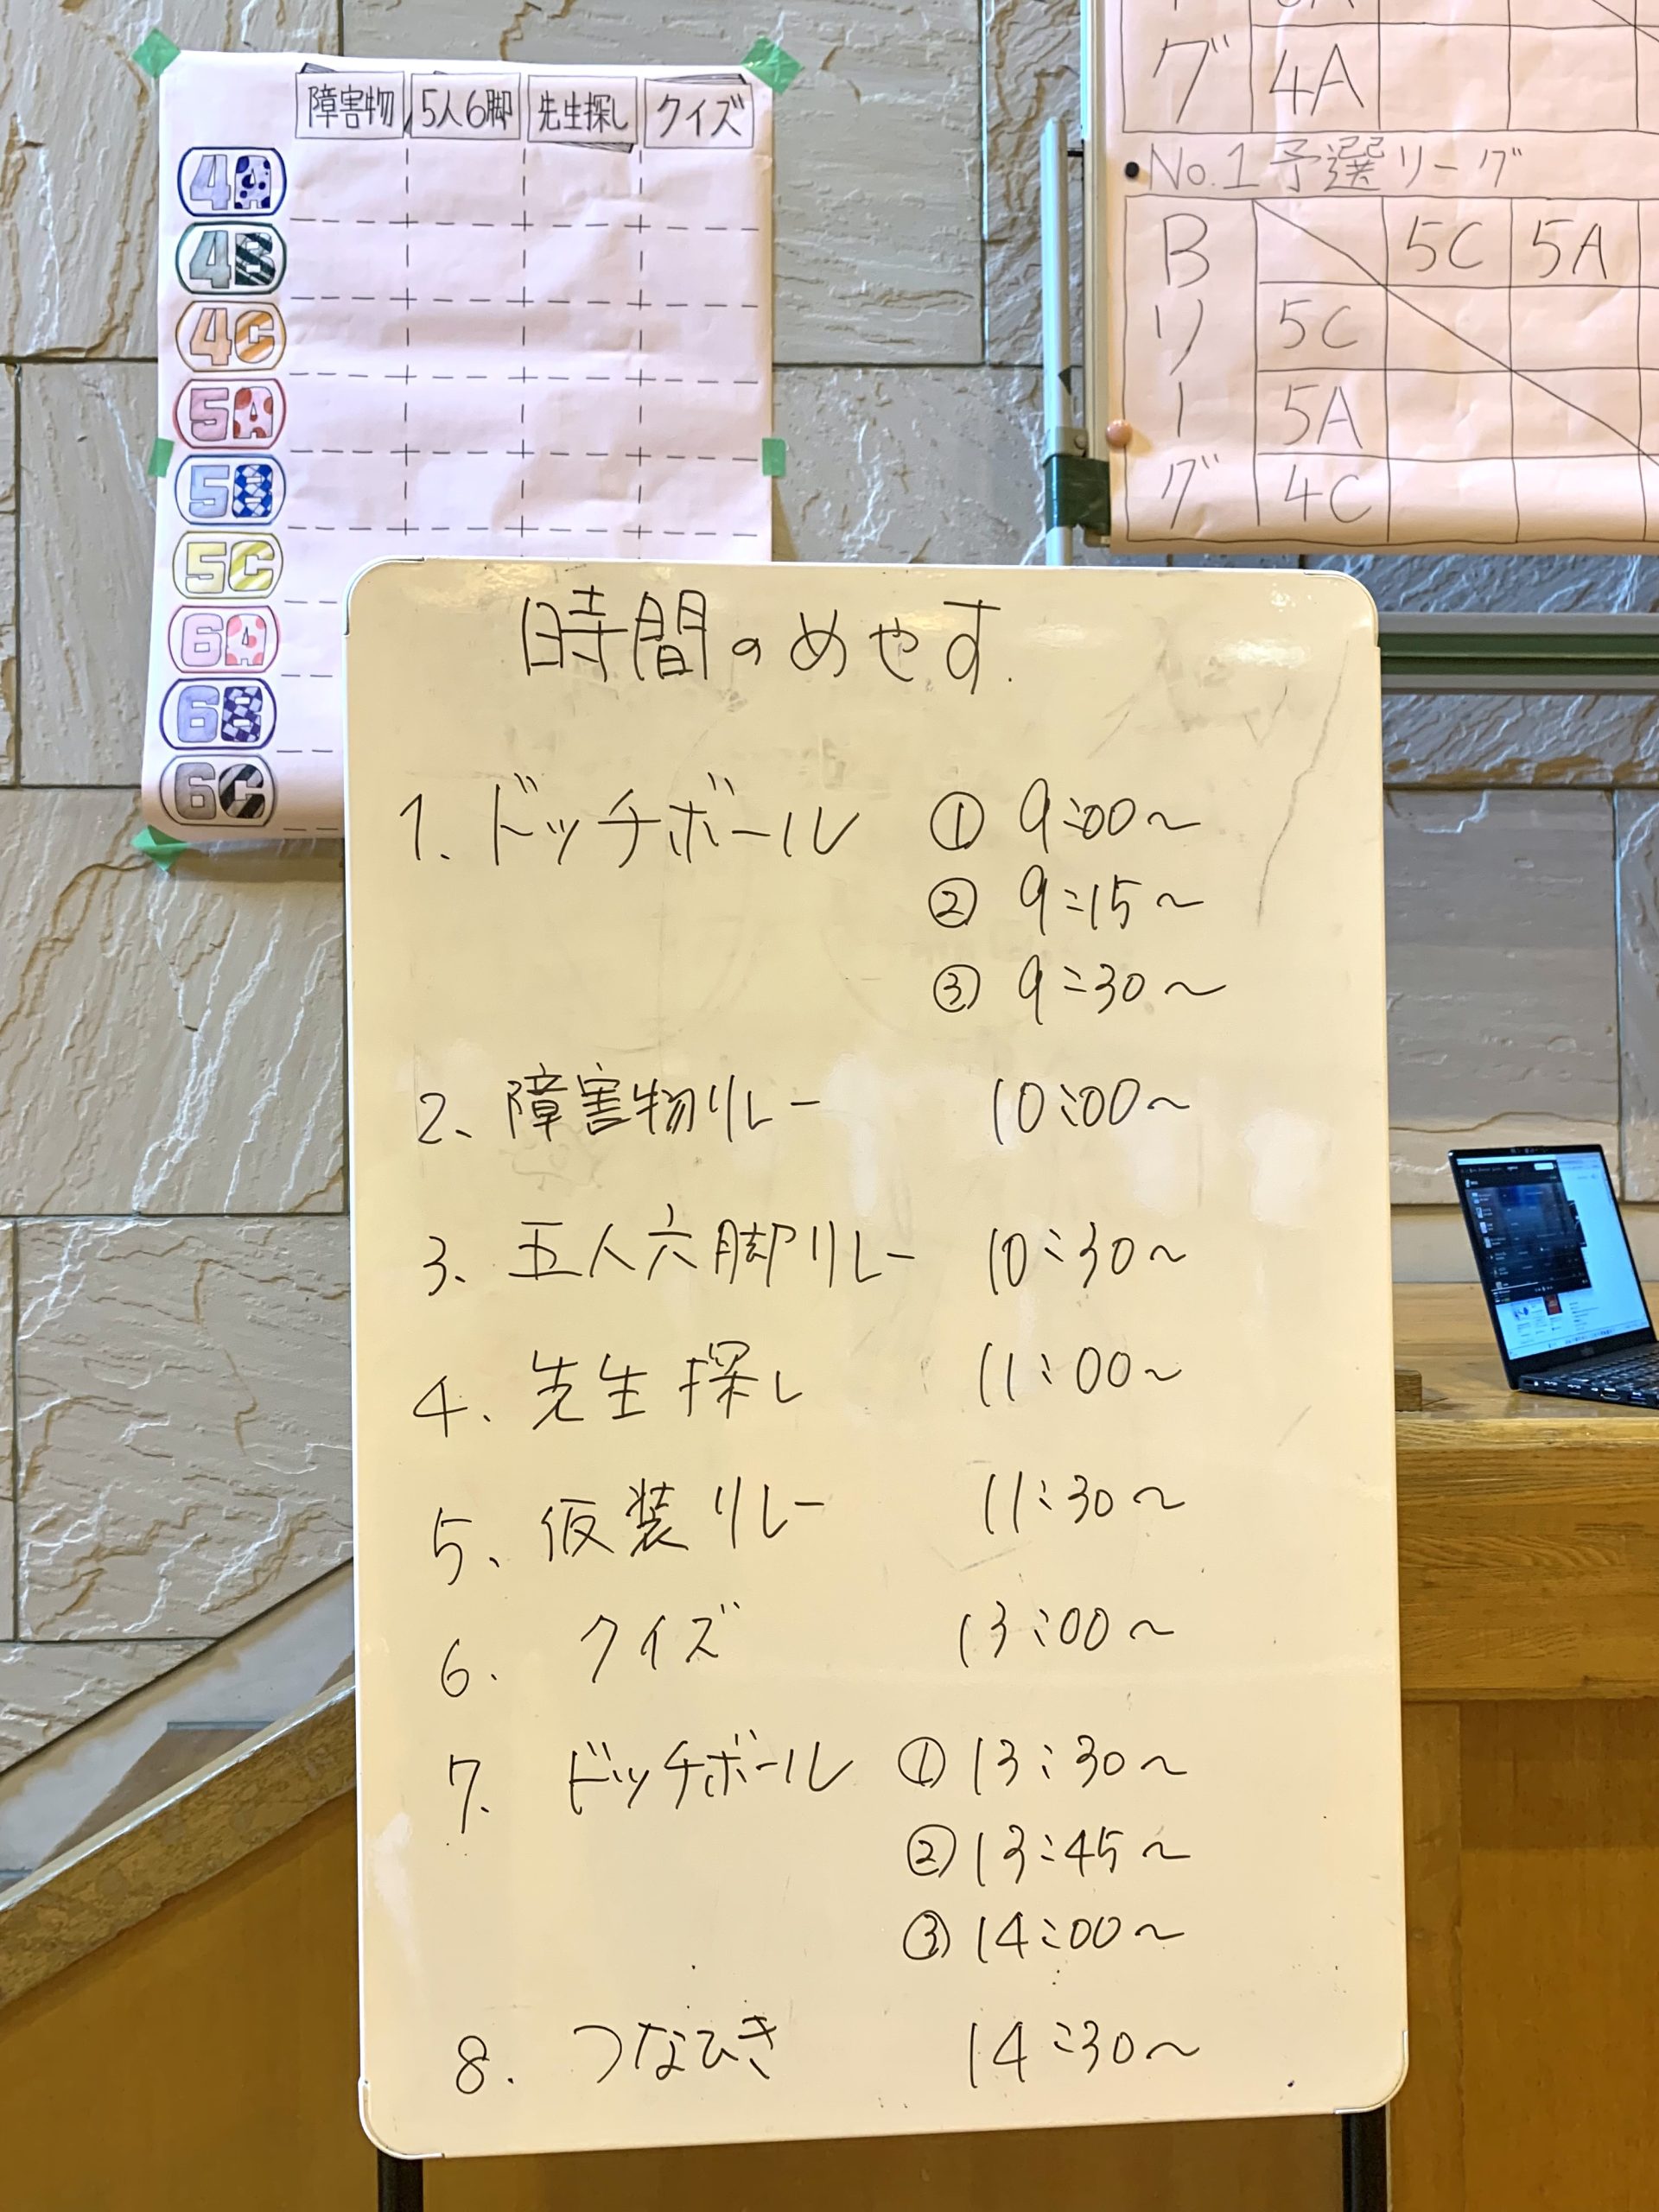 障害物 5人6脚 先生探し クイズ
4A
4B
4C
5A
5B
5C
6A
6B
6C
グ 4A
No.1 予選リーグ
B 5C 5A
リ 5C
ー 5A
グ 4C
時間のめやす.
1. ドッチボール ① 9:00~
② 9:15~
③ 9:30~
2、障害物リレー 10:00~
3、五人六脚リレー 10:30~
4、先生探し 11:00~
5、仮装リレー 11:30~
6. クイズ 13:00~
7. ドッチボール ① 13:30~
② 13:45~
③ 14:00~
8. つなひき 14:30~